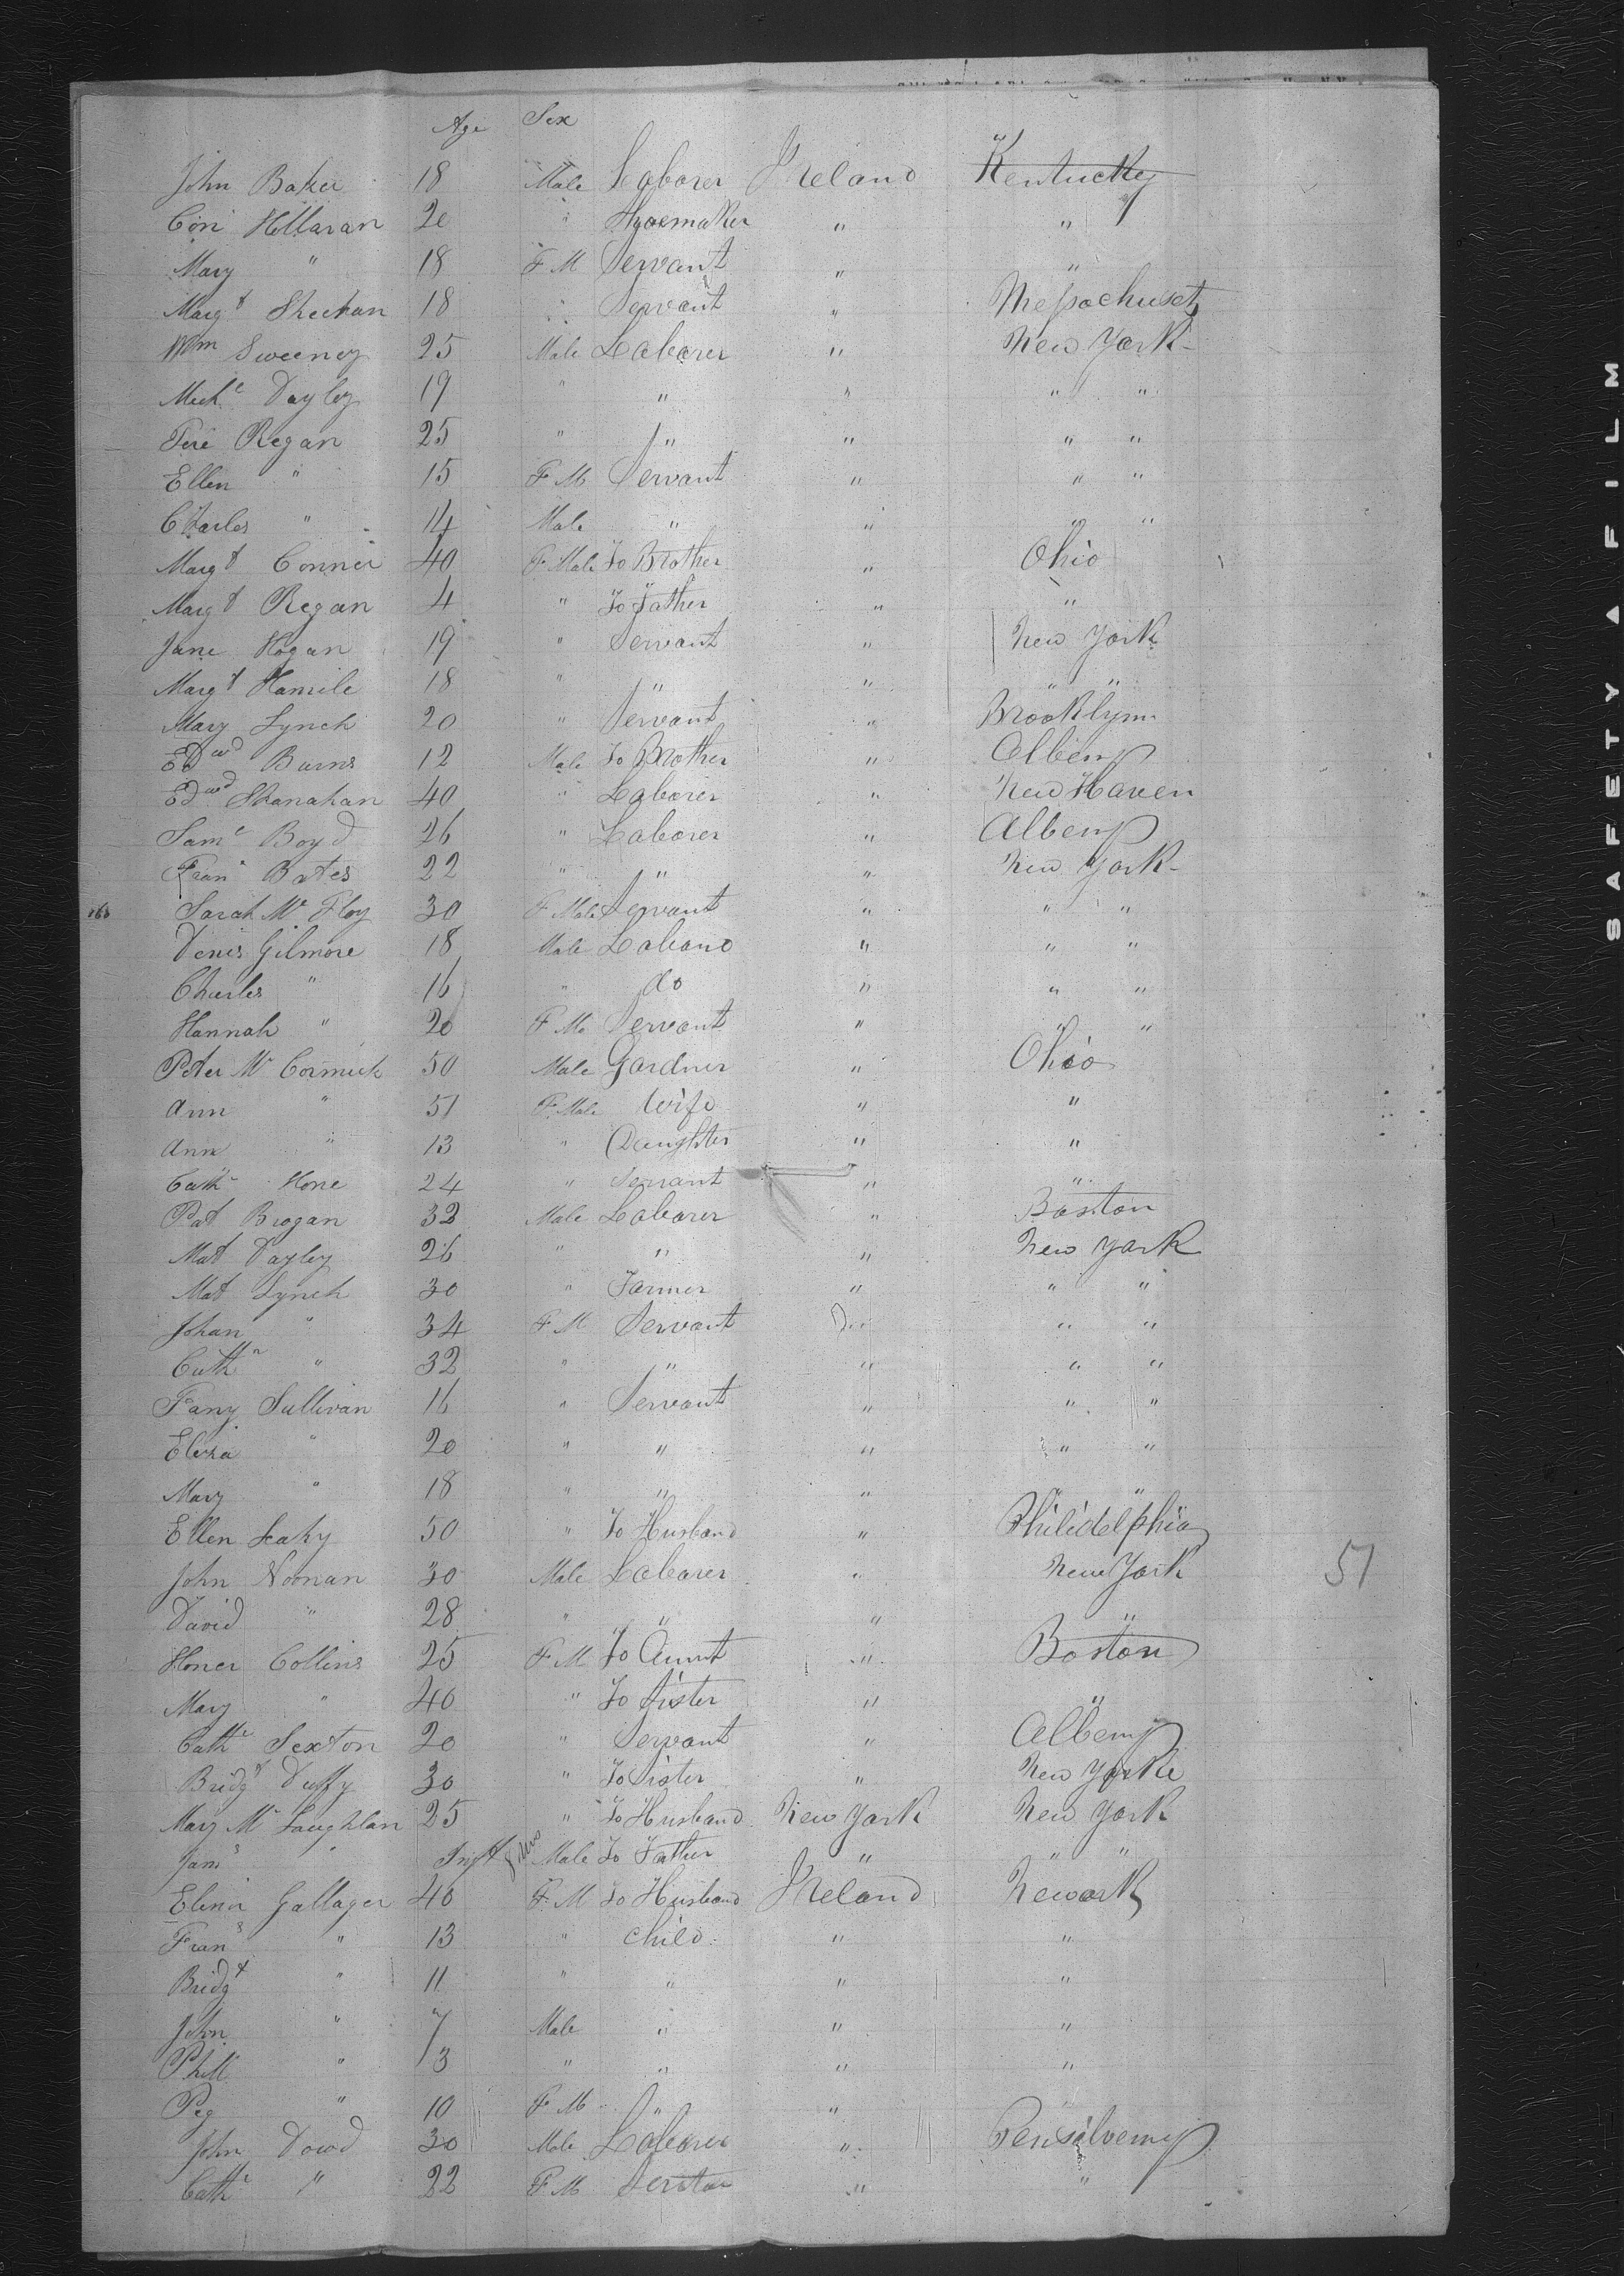 Age Sex
John Baker 18 Male Laborer Ireland Kentucky
Con Hollaran 20 " Shoemaker " "
Mary " 18 F M Servant " "
Margt Sheehan 18 " Servant " Messachusets
Wm Sweeney 25 Male Laborer " New York
Mich Dayley 19 " " " " "
Jere Regan 25 " " " " "
Ellen " 15 F M Servant " " "
Charles " 14 Male " " " "
Margt Conner 40 F Male To Brother " Ohio
Margt Regan 4 " To Father " "
Jane Hogan 19 " Servant " New York
Margt Hamile 18 " " " " "
Mary Lynch 20 " Servant " Brooklynn
Edwd Burns 12 Male To Brother " Albeny
Edwd Shanahan 40 " Laborer " New Haven
Saml Boyd 26 " Laborer " Albeny
Frans Bates 22 " " " New York
Sarah Mc Floy 30 F Male Servant " " "
Denis Gilmore 18 Male " " "
Charles " 16 " do " " "
Hannah " 20 F M Servant " " "
Peter Mc Cormick 50 Male Gardner " Ohio
Ann " 51 F Male Wife " "
Ann " 13 " Daughter " "
Cath Hone 24 " Servant " "
Pat Brogan 32 Male Laborer " Boston
Mat Dayley 26 " " " New York
Mat Lynch 30 " Farmer " " "
Johan " 34 F M Servant " " "
Cath " 32 " " " " "
Fany Sullivan 16 " Servant " " "
Eliza " 20 " " " " "
Mary " 18 " " " " "
Ellen Leahy 50 " To Husband " Philidelphia
John Noonan 30 Male Laborer " New York 51
David " 28 " " " "
Honer Collins 25 F M To Aunt " Boston
Mary " 40 " To Sister " "
Cath Sexton 20 " Servant " Albeny
Bridgt Duffy 30 " To Sister " New York
Mary Mc Laughlan 25 " To Husband New York New York
Jams " Inft Male To Father " " "
Elenor Gallager 40 F M To Husband Ireland Newark
Frans " 13 " Child " "
Bridgt " 11 " " " "
John " 7 Male " " "
Phill " 3 " " " "
Peg " 10 F M " "
John Dowd 30 Male Laborer " Pensilveny
Cath " 22 F M " "
SAFETY A FILM